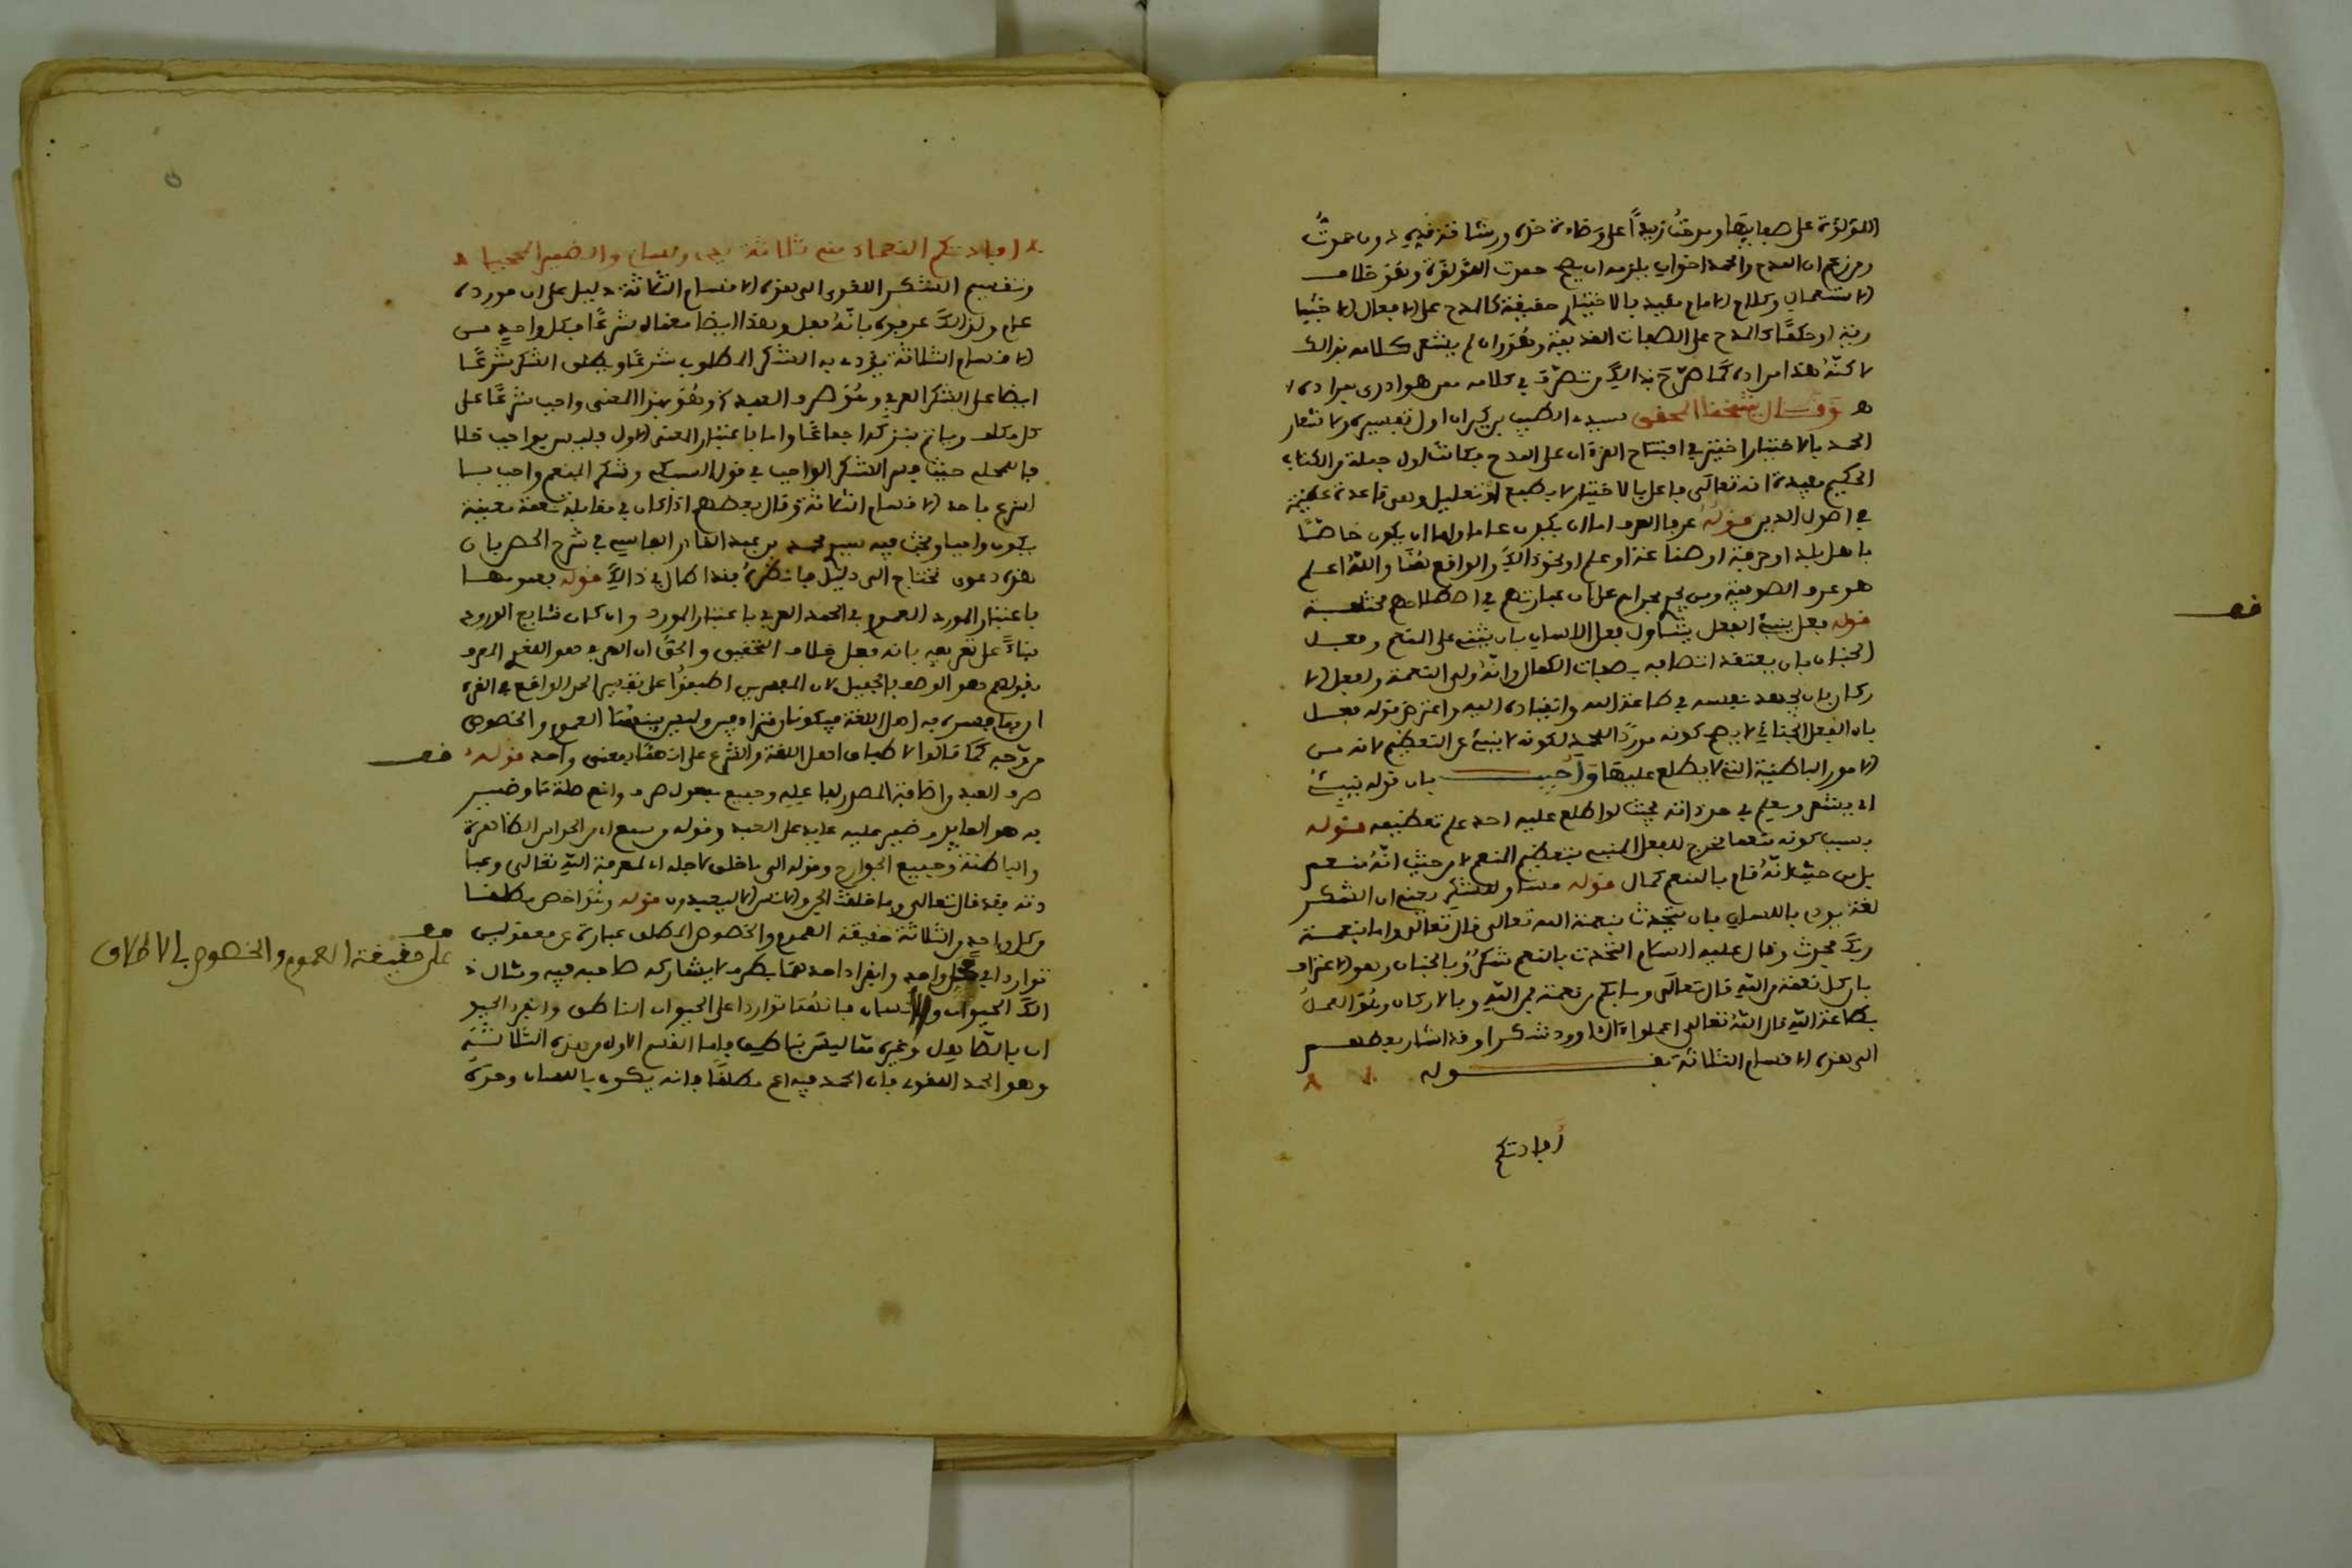 اللؤلؤة على صفائها ومدحت زيدا على وضاءة خده ورشاقة قده دون حمدت
ومن زعم ان المدح والحمد اخوان يلزمه ان يصح حمدت اللؤلؤة وهو خلاف
الاستعمال وكلام الامام مقيد بالاختيار حقيقة كالمدح على الافعال الاختيا
رية او حكما كالمدح على الصفات القديمة وهو وان لم يشعر كلامه بذالك
لاكنه هذا مراده كما صرح بذالك من تصرف في كلامه ممن هو ادرى بمراده
وقال شيخنا المحقق سيدي الطيب بن كيران اول تفسيره ولاشعار
الحمد بالاختيار اختير في افتتاح القرءان على المدح فكانت اول جملة من الكتاب
الحكيم مفيدة انه تعالى فاعل بالاختيار لا بطبع او تعليل وهى قاعدة عظيمة
في اصول الدين قوله عرفا العرف اما ان يكون عاما واما ان يكون خاصا
باهل بلد او حرفة او صناعة او علم او نحو ذالك والواقع هنا والله اعلم
هو عرف الصوفية
قوله فعل ينبئ الفعل يتناول فعل اللسان بان يثنى على المنعم وفعل
الجنان بان يعتقد اتصافه بصفات الكمال وانه ولى النعمة وفعل الا
ركان بان يجهد نفسه في طاعة الله وانقياده اليه واعترض قوله فعل
بان الفعل الجناني لا يصح كونه موردا للحمد لكونه لا ينبئ عن التعظيم لانه من
الامور الباطنية التي لا يطلع عليها واجيب بان قوله ينبئ
اى يشعر ويعلم في حد ذاته بحيث لو اطلع عليه احد علم تعظيمه قوله
بسبب كونه منعما مخرج للفعل المنبئ بتعظيم المنعم لا من حيث انه منعم
بل من حيث انه قام بالمنعم كمال قوله مساو للشكر يعنى ان الشكر
لغة يرد باللسان بان يتحدث بنعمة الله تعالى قال تعالى واما بنعمة
ربك فحدث وقال عليه السلام التحدث بالنعم شكر وبالجنان وهو الاعتراف
بان كل نعمة من الله قال تعالى وما بكم من نعمة فمن الله وبالاركان وهو العمل
بطاعة الله قال الله تعالى اعملوا ءال داوود شكرا وقد اشار بعضهم
الى هذه الاقسام الثلاثة بقوله
أفادتكم
أفادتكم النعماء منى ثلاثة يدى ولسانى والضمير المحجبا
وتقسيم الشكر اللغوى الى هذه الاقسام الثلاثة دليل على ان مورده
عام ولذالك عرفوه بانه فعل وهذا ايضا معناه شرعا فكل واحد من
الاقسام الثلاثة يؤدى به الشكر المطلوب شرعا ويطلق الشكر شرعا
ايضا على الشكر العرفي وهو صرف العبد وهو بهذا المعنى واجب شرعا على
كل مكلف وياثم بتركه اجماعا واما باعتبار المعنى الاول فليس بواجب خلا
فا للمحلى حيث فسر الشكر الواجب في قول السبكى وشكر المنعم واجب بسا
الشرع باحد الاقسام الثلاثة وقال بعضهم اذا كان في مقابلة نعمة معينة
يكون واجبا وبحث فيه سيدي محمد بن عبد القادر الفاسي في شرح الحصن بان
هذه دعوى تحتاج الى دليل فانظره فقد اطال في ذالك قوله بعمومها
باعتبار المورد العموم في الحمد العرفي باعتبار المورد وان كان شايع الورود
بناء على تعريفه بانه فعل خلاف التحقيق والحق ان العرفي هو اللغوي المعرف
بقولهم هو الوصف بالجميل لان المفسرين اطبقوا على تفسير الحمد الواقع في القرء
ان بما فسره به اهل اللغة فيكونان مترادفين وليس بينهما العموم والخصوص
من وجه كما قالوا لاطباق اهل اللغة والشرع على انهما بمعنى واحد قوله
صرف العبد واضافة المصدر لفاعله وجميع مفعول صرف وانعم صلة ما وضمير
به هو العايد وضمير عليه عايد على العبد وقوله من سمع اى من الحواس الظاهرة
والباطنة وجميع الجوارح وقوله الى ما خلق لاجله اى لمعرفة الله تعالى وعبا
دته فقد قال تعالى وما خلقت الجن والانس الا ليعبدون قوله وهو اخص مطلقا
من كل واحد من الثلاثة حقيقة العموم والخصوص المطلق عبارة عن معقولين
تواردا في محل واحد وانفراد احدهما بطرف لا يشاركه صاحبه فيه ومثال ذ
الك الحيوان والانسان فانهما تواردا على الحيوان الناطق وانفرد الحيو
ان بالصاهل وغيره مما ليس بناطق فاما القسم الاول من هذه الثلاثة
وهو الحمد اللغوى فان الحمد فيه اعم مطلقا فانه يكون باللسان وحده
قف
على حقيقة العموم والخصوص بالاطلاق